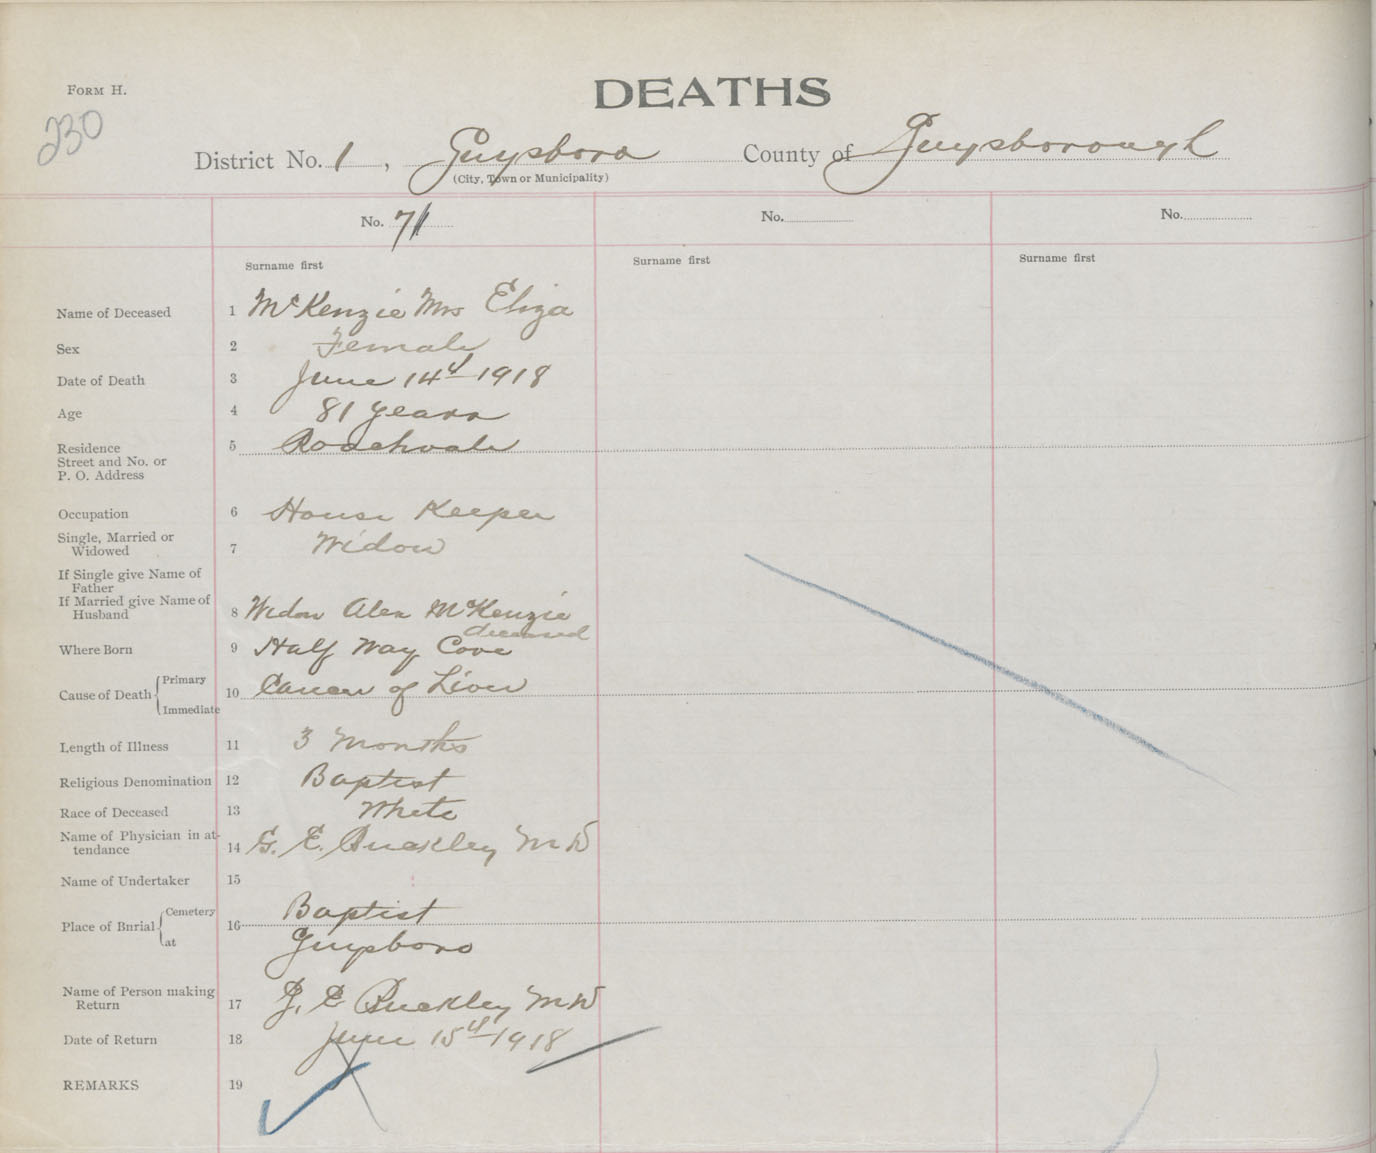 FORM H.
DEATHS
230
District No. 1, Guysboro County of Guysborough
(City, Town or Municipality)
No. 71 No. No.
Surname first Surname first Surname first
Name of Deceased 1 McKenzie Mrs Eliza
Sex 2 Female
Date of Death 3 June 14th 1918
Age 4 81 years
Residence 5 Roachvale
Street and No. or
P. O. Address
Occupation 6 House Keeper
Single, Married or
Widowed 7 Widow
If Single give Name of
Father
If Married give Name of
Husband 8 Widow Alex McKenzie
deceased
Where Born 9 Half Way Cove
Cause of Death Primary 10 Cancer of Liver
Immediate
Length of Illness 11 3 Months
Religious Denomination 12 Baptist
Race of Deceased 13 White
Name of Physician in at-
tendance 14 G. E. Buckley MD
Name of Undertaker 15
Place of Burial Cemetery 16 Baptist
at Guysboro
Name of Person making
Return 17 G. E. Buckley MD
Date of Return 18 June 15th 1918
REMARKS 19